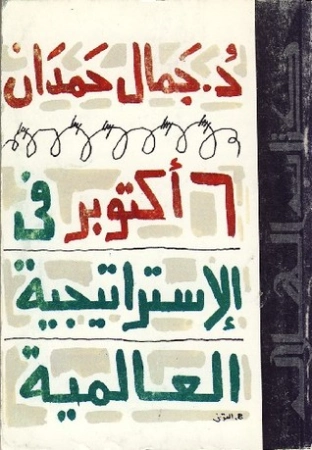 د. جمال حمدان
٦ أكتوبر فى
الإستراتيجية
العالمية
كتاب الهلال